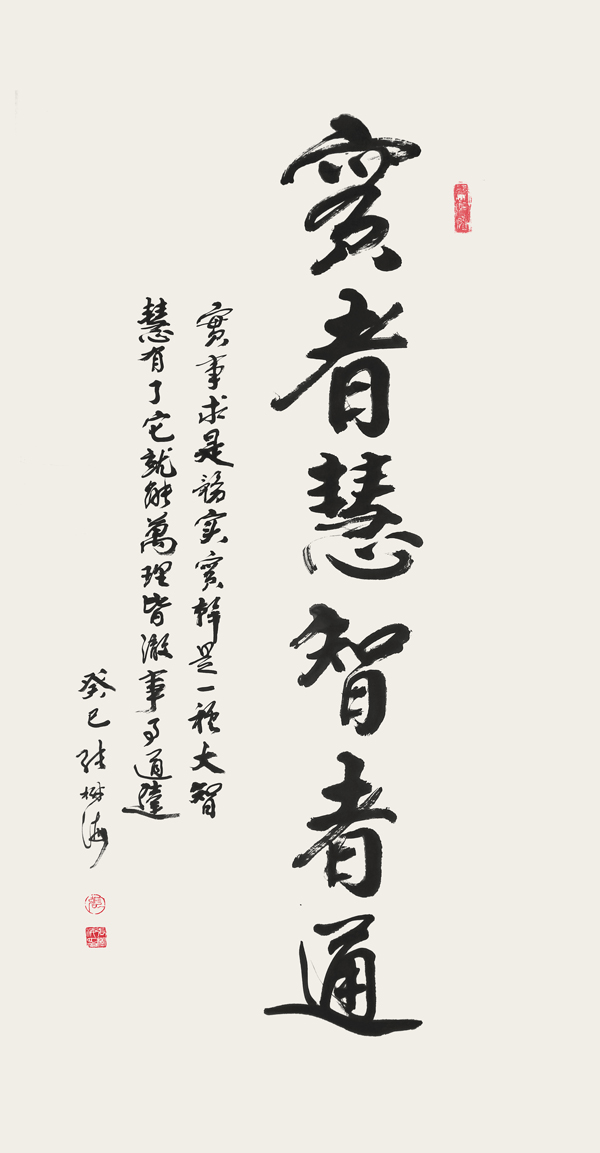 實者慧智者通
實事求是務实實幹是一種大智
慧有了它就能萬理皆澈事事通達
癸巳 張树海